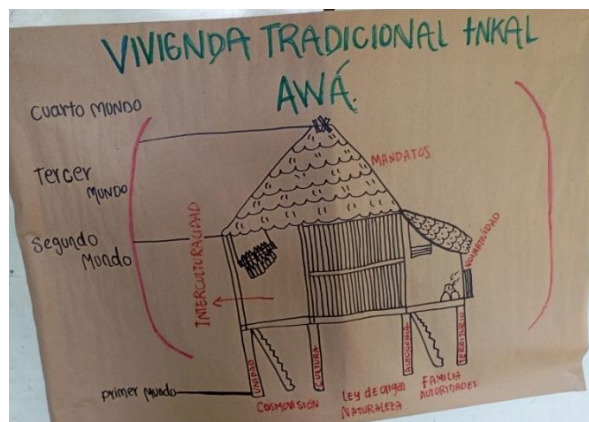 VIVIENDA TRADICIONAL INKAL
AWÁ.
CUARTO MUNDO
Tercer
MUNDO
Segundo
Mundo
primer Mundo
MANDATOS
INTERCULTURALIDAD
NORMATIVIDAD
UNIDAD
CULTURA
AUTONOMIA
TERRITORIO
COSMOVISIÓN
LEY de ORIGEN
NATURALEZA
FAMILIA
AUTORIDADES